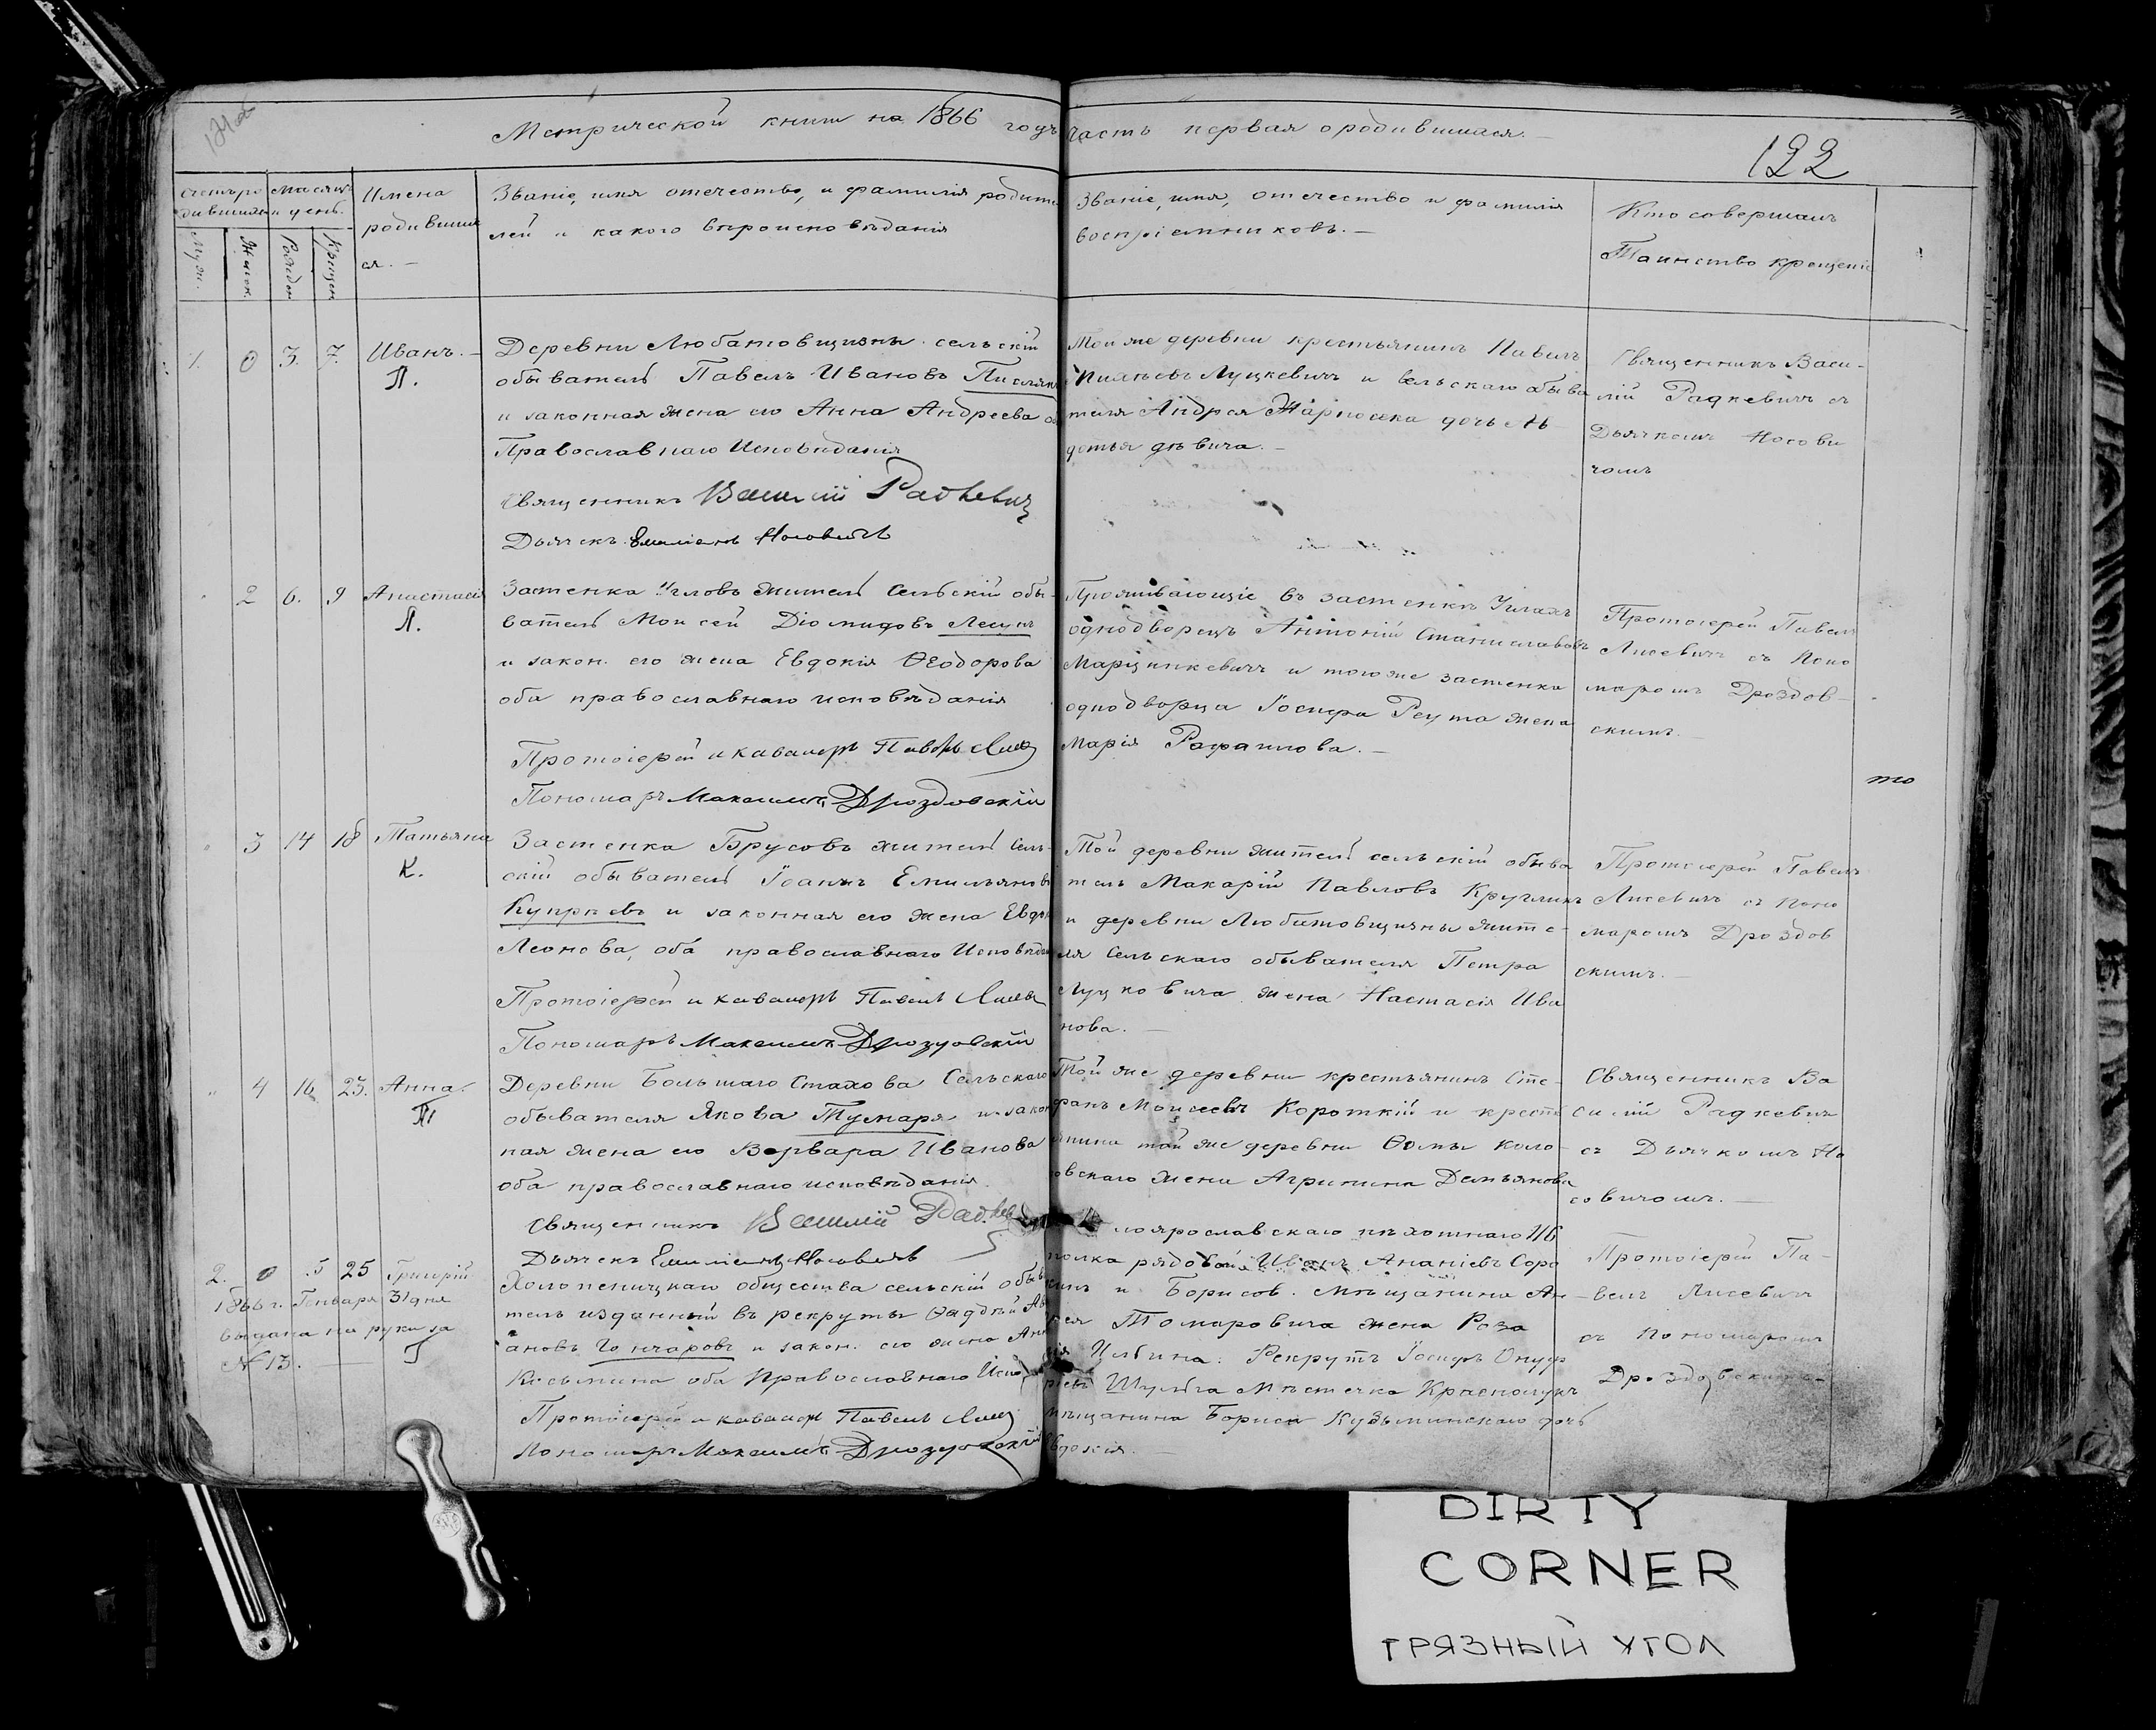 Метрической книги на 1866 годъ Часть первая о родившихся.
122
Имена
родивших
ся.
Званіе, имя отечество, и фамилія родите
лей и какого вѣроисповѣданія
Званіе, имя, отечество и фамилія
воспріемниковъ.
Кто совершалъ
Таинство крещенія
Муж.
Женск.
Рожден
Крещен
1. 0 3. 7. Иванъ.
П.
Деревни Любатовщизны сельскій
обыватель Павелъ Ивановъ
и законная жена его Анна Андреева
Православнаго Исповѣданія
Священникъ Василій Радкевич
Дьячекъ Емиліанъ Носовичъ
Той же деревни крестьянинъ Павелъ
Луцкевичъ и сельскаго обыва
теля Андрея Жарносека дочь Ав
дотья дѣвица.
Священникъ Васи-
лій Радкевичъ съ
Дьячкомъ Носови
чомъ
2 6. 9 Анастасія
П.
Застенка Угловъ житель Сельскій обы-
ватель Моисей Діомидовъ Лесунъ
и закон. его жена Евдокія Ѳеодорова
оба православнаго исповѣданія
Протоіерей и кавалеръ Павелъ Лисев
Пономарь Максимъ Дроздовскій
Проживающіе въ застенкѣ Углахъ
однодворецъ Антоній Станиславовъ
Марцинкевичъ и того же застенка
однодворца Іосифа Реута жена
Марія Рафаилова.
Протоіерей Павелъ
Лисевичъ съ Поно
маромъ Дроздов-
скимъ.
то
3 14 18 Татьяна
К.
Застенка Брусовъ житель Сель-
скій обыватель Іоаннъ Емильяновъ
Купрѣевъ и законная его жена Евдок
Леонова, оба православнаго Исповѣдан
Протоіерей и кавалеръ Павелъ Лисев
Пономарь Максимъ Дроздовскій
Той деревни житель сельскій обыва
тель Макарій Павловъ Кругликъ
и деревни Любатовщизны жите-
ля Сельскаго обывателя Петра
Луцковича жена Настасія Ива
нова.
Протоіерей Павелъ
Лисевичъ съ Поно
маромъ Дроздов
скимъ.
4 16 23. Анна.
П
Деревни Большаго Стахова Сельскаго
обывателя Якова Тумаря и закон
ная жена его Варвара Иванова
оба православнаго исповѣданія.
Священникъ Василій Радкев
Дьячекъ Емиліанъ Носовичъ
Той же деревни крестьянинъ Сте-
фанъ Моисеевъ Короткій и кресть
янина той же деревни Ѳомы Коло-
овскаго жена Агрипина Демьянова
Священникъ Ва
силій Радкевичъ
съ Дьячкомъ Но
совичомъ.
2. 0 5 25 Григорій
1866 г. Генваря 31 дня
выдана на руки за
№ 13.
Холопеничкаго общества сельскій обыва
тель изданный въ рекруты Ѳаддѣй
ановъ Гончаровъ и закон. его жена Анн
Косьмина оба Православнаго Испо
Протоіерей и кавалеръ Павелъ Лисев
Пономарь Максимъ Дроздовскій
лоярославскаго пѣхотнаго 116
полка рядовой Иванъ Ананіевъ Соро
кинъ и Борисов. мѣщанина Ан-
рея Томаровича жена Роза
Рекрутъ Іосифъ Онуф
ріевъ Шульга Мѣстечка Краснолукъ
мѣщанина Бориса Кузьминскаго дочь
вдокія.
Протоіерей Па-
велъ Лисевичъ
съ Пономаромъ
Дроздовскимъ
DIRTY
CORNER
ГРЯЗНЫЙ УГОЛ